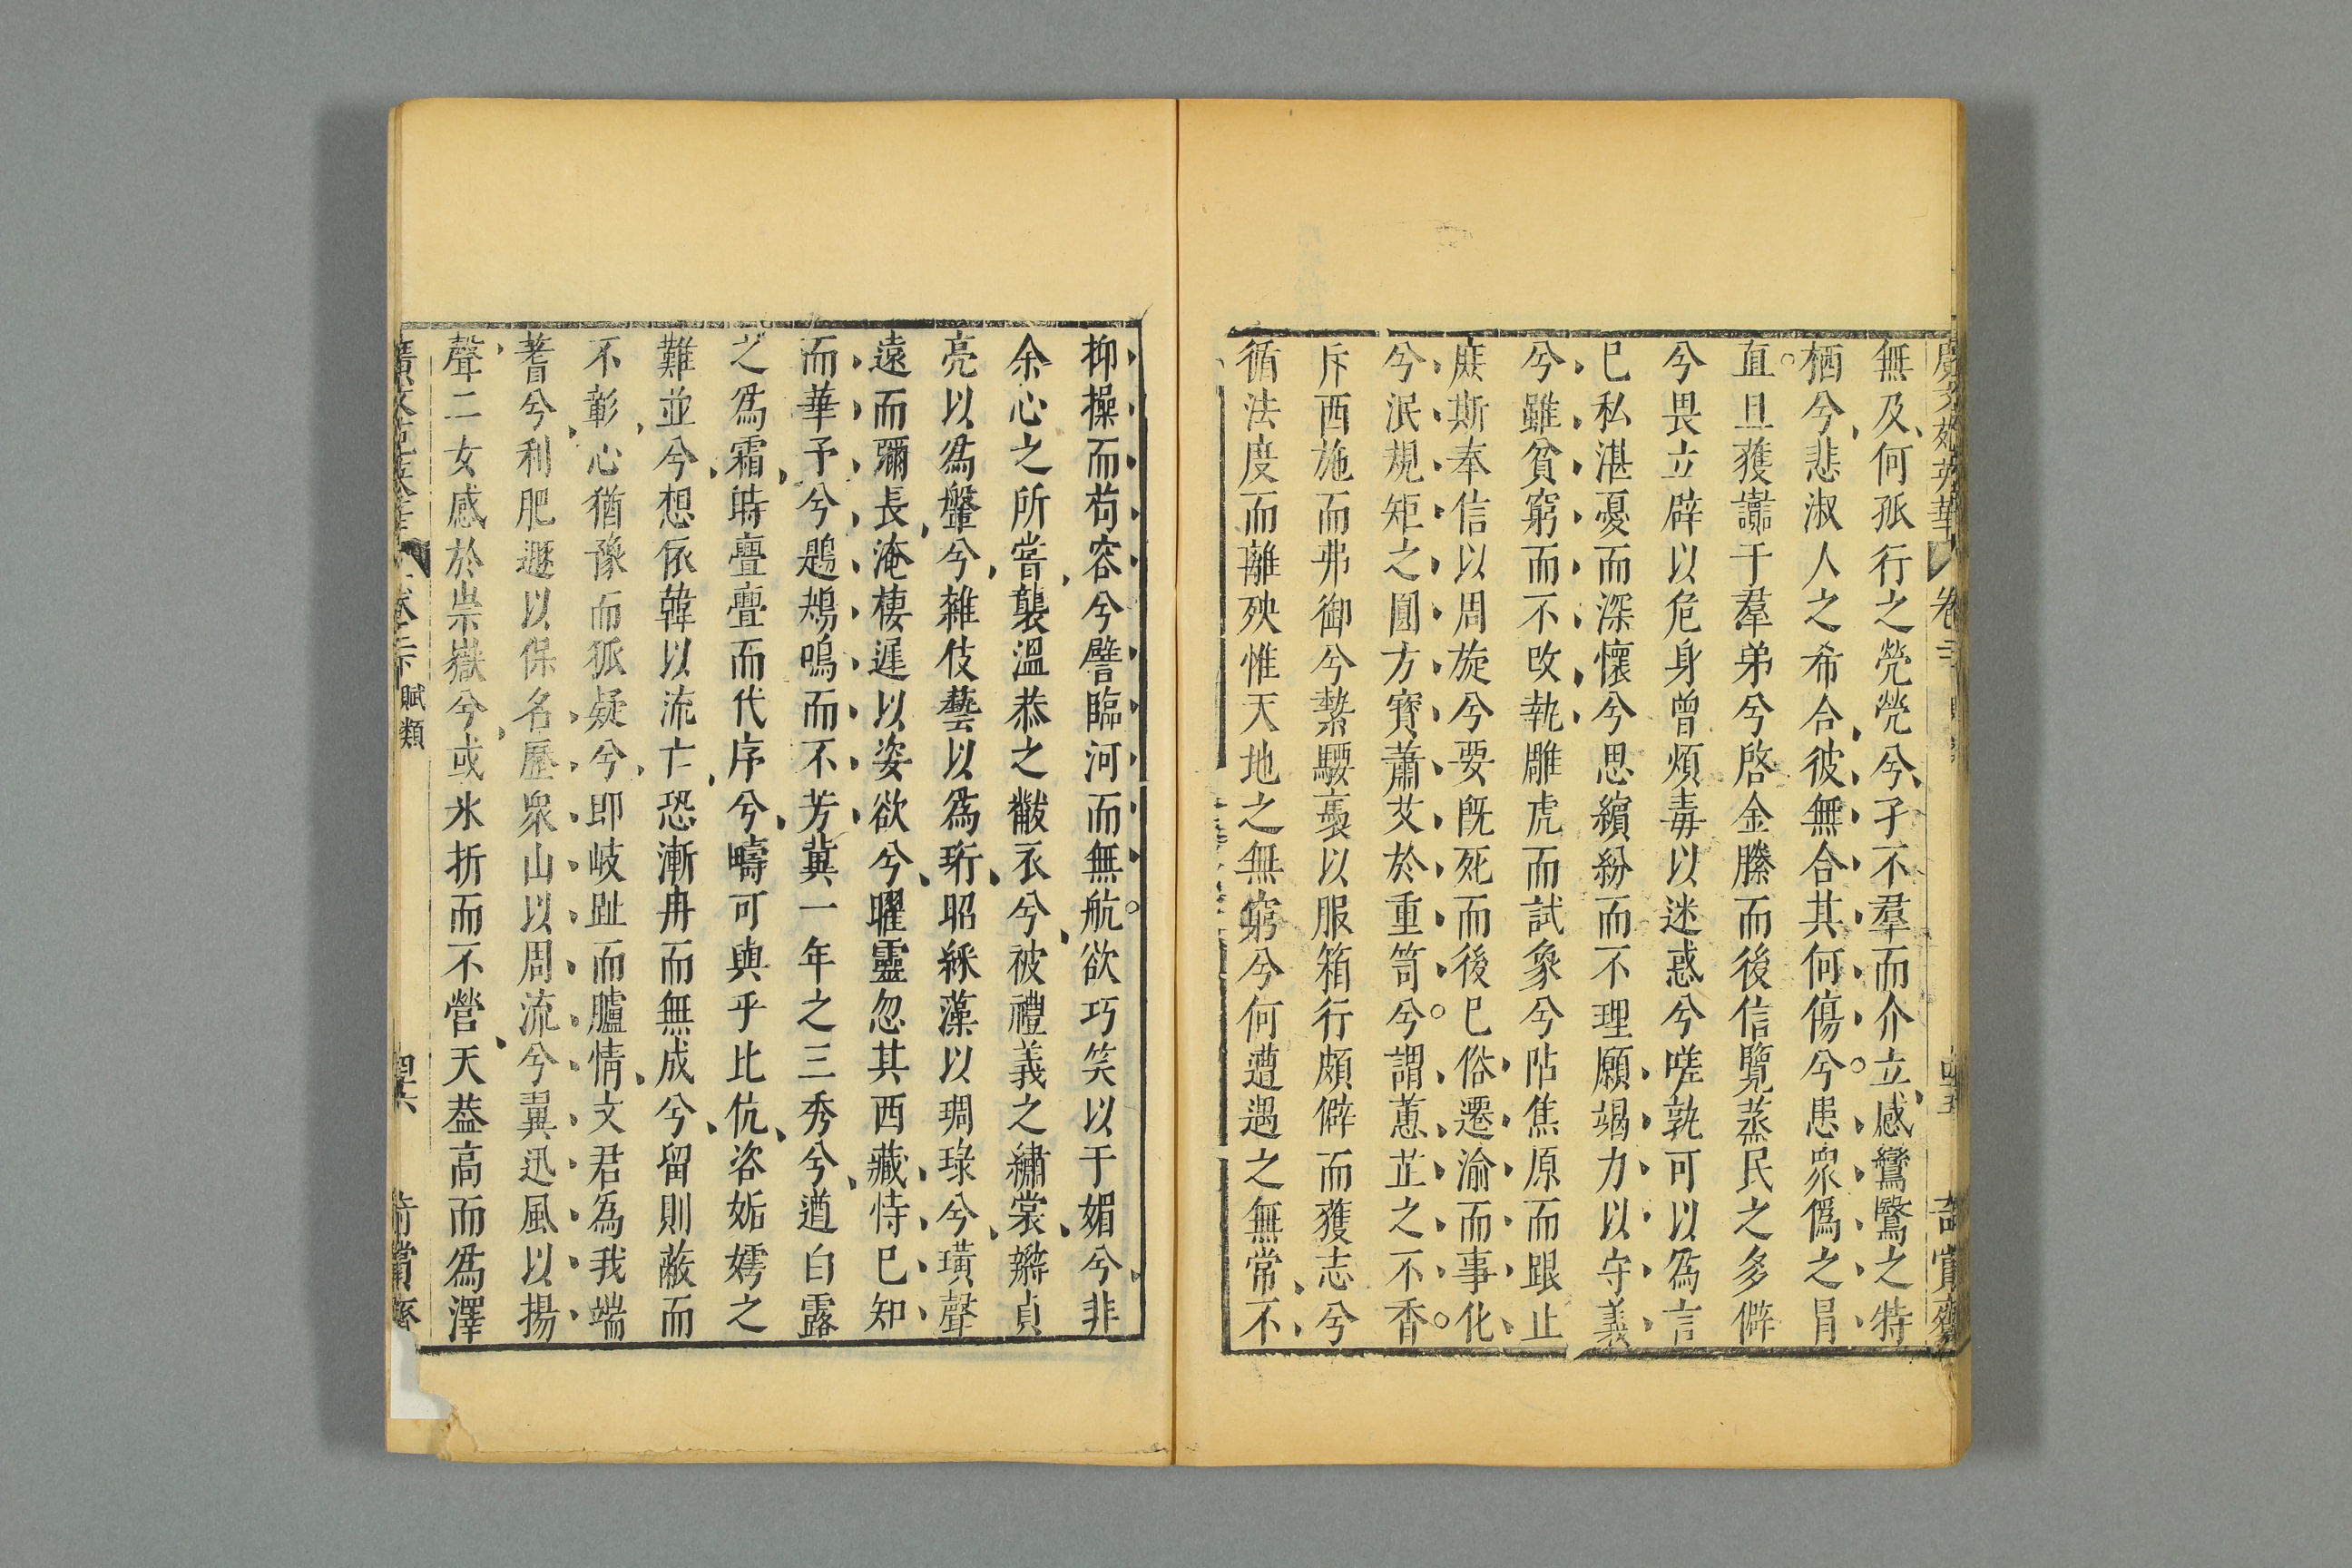 廣文苑英華 卷二 奇賞齋
無及何孤行之煢煢兮孑不羣而介立感鸞鷖之特
栖兮悲淑人之希合彼無合其何傷兮患衆僞之冐
直旦獲讟于羣弟兮啓金縢而後信覽蒸民之多僻
兮畏立辟以危身曾煩毒以迷惑兮嗟孰可以爲言
巳私湛憂而深懷兮思繽紛而不理願竭力以守義
兮雖貧窮而不改執雕虎而試象兮阽焦原而跟止
庶斯奉信以周旋兮要旣死而後巳俗遷渝而事化
兮泯規矩之圓方寶蕭艾於重笥兮謂蕙茝之不香
斥西施而弗御兮縶騕褭以服箱行頗僻而獲志兮
循法度而離殃惟天地之無窮兮何遭遇之無常不
抑操而苟容兮譬臨河而無航欲巧笑以于媚兮非
余心之所嘗襲溫恭之黻衣兮被禮義之繡裳辮貞
亮以爲鞶兮雜伎藝以爲珩昭綵藻以琱琭兮璜聲
遠而彌長淹棲遲以姿欲兮曜靈忽其西藏恃巳知
而華予兮鶗鴂鳴而不芳冀一年之三秀兮遒白露
之爲霜時亹亹而代序兮疇可與乎比伉咨姤嫮之
難並兮想依韓以流亡恐漸冉而無成兮留則蔽而
不彰心猶豫而狐疑兮即岐趾而臚情文君爲我端
蓍兮利肥遯以保名歷衆山以周流兮翼迅風以揚
聲二女感於崇嶽兮或氷折而不營天葢高而爲澤
廣文苑英華 卷二下 賦類 四六 奇賞齋